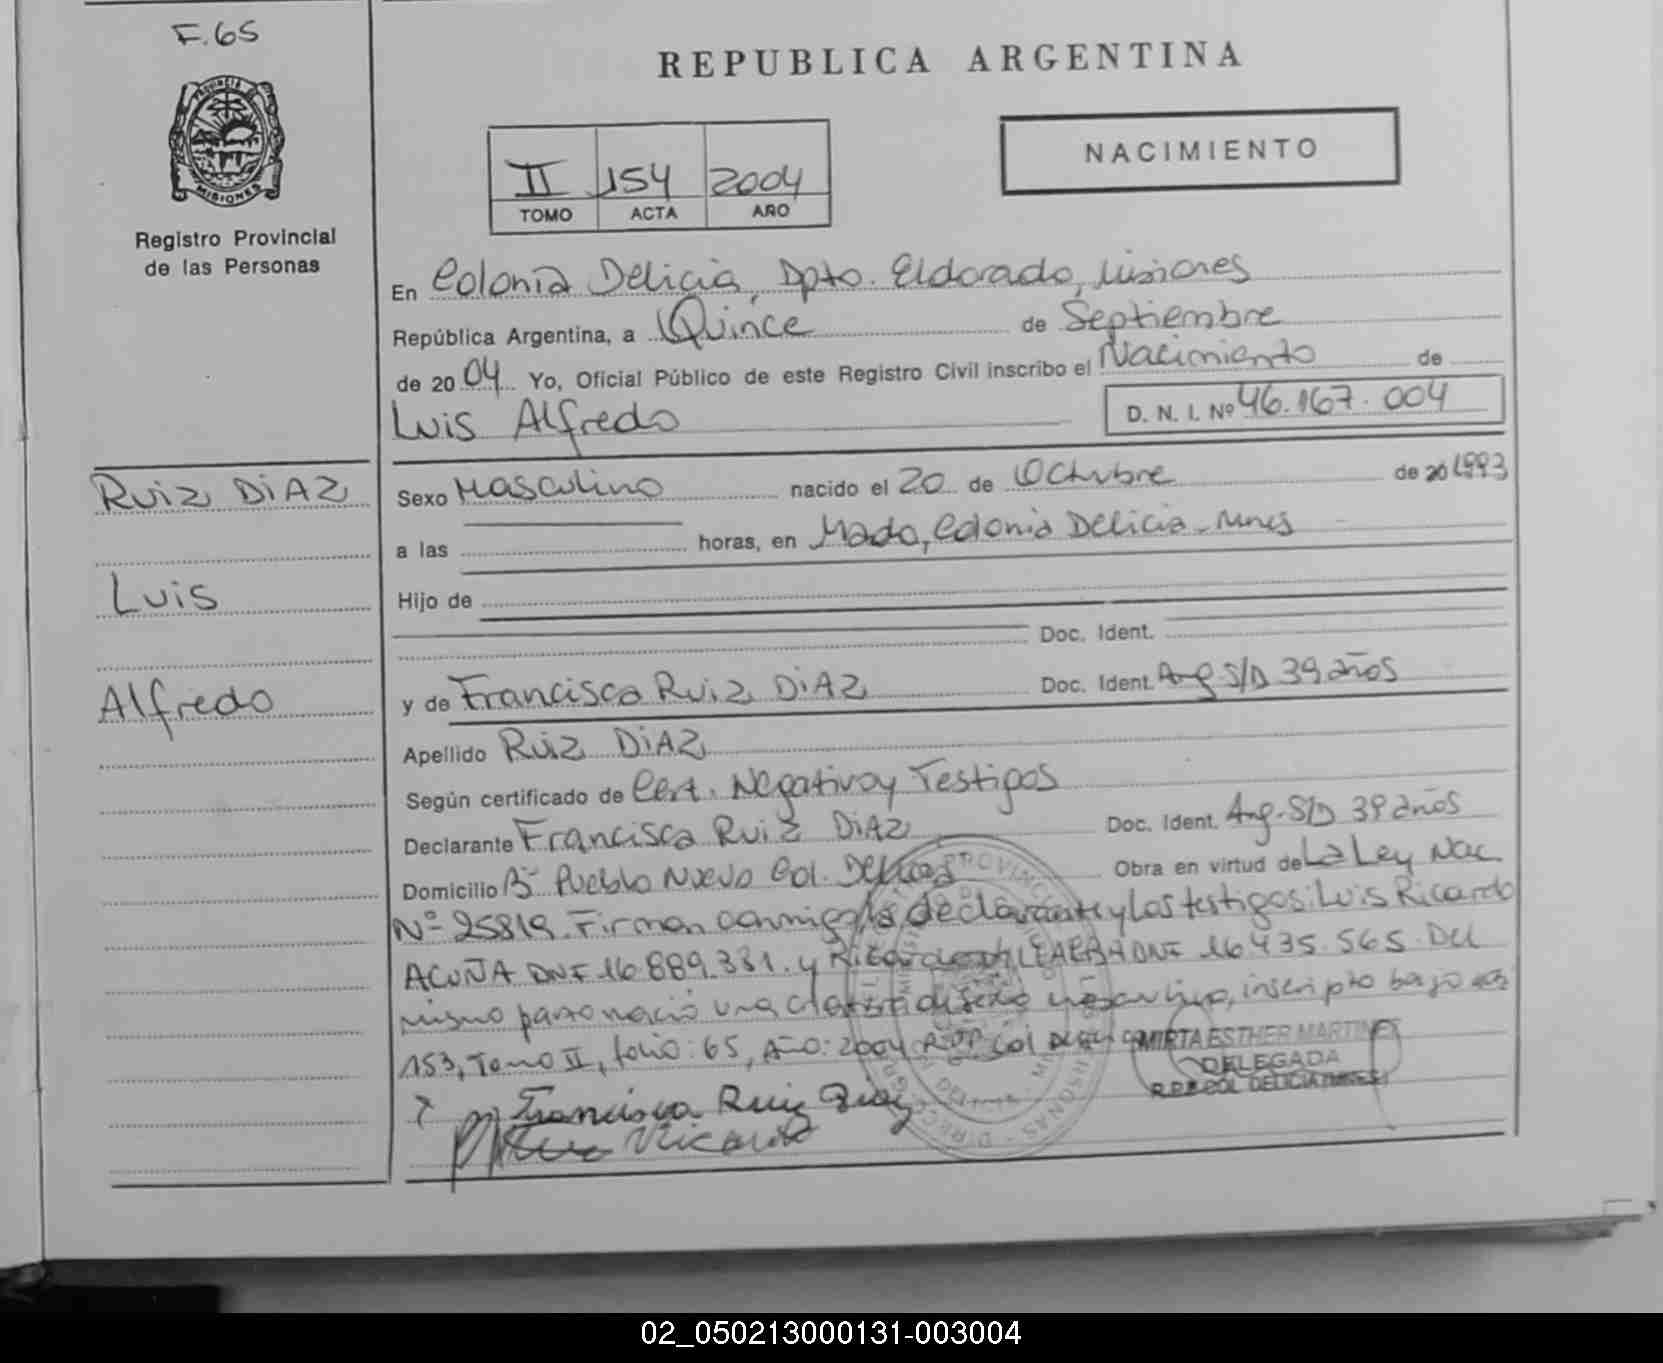 F.65
PROVINCIA DE
MISIONES
Registro Provincial
de las Personas
REPUBLICA ARGENTINA
NACIMIENTO
II 154 2004
TOMO ACTA AÑO
En Colonia Delicia, Dpto. Eldorado, Misiones
República Argentina, a Quince de Septiembre
de 2004 Yo, Oficial Público de este Registro Civil inscribo el Nacimiento de
Luis Alfredo D. N. I. Nº 46.167.004
Ruiz DiAZ
Luis
Alfredo
Sexo Masculino nacido el 20 de Octubre de 20 1993
a las horas, en Mado, Colonia Delicia - Mnes
Hijo de
Doc. Ident.
y de Francisca Ruiz DiAZ Doc. Ident. Arg S/D 39 años
Apellido Ruiz DiAZ
Según certificado de Cert. Negativo y Testigos
Declarante Francisca Ruiz DiAZ Doc. Ident. Arg - S/D 39 años
Domicilio Bº Pueblo Nuevo Col. Delicia Obra en virtud de La Ley Nac
Nº 25819. Firman conmigo la declarante y los testigos: Luis Ricardo
ACUÑA DNI 16.889.331. y Ricardo DNI 16.435.565. Del
mismo parto nació una de sexo inscripto bajo
153, Tomo II, folio: 65, Año: 2004 Col
MIRTA ESTHER MARTINEZ
DELEGADA
R.P.P. COL DELICIA MNES
Francisca Ruiz Diaz
Ricardo
02_050213000131-003004